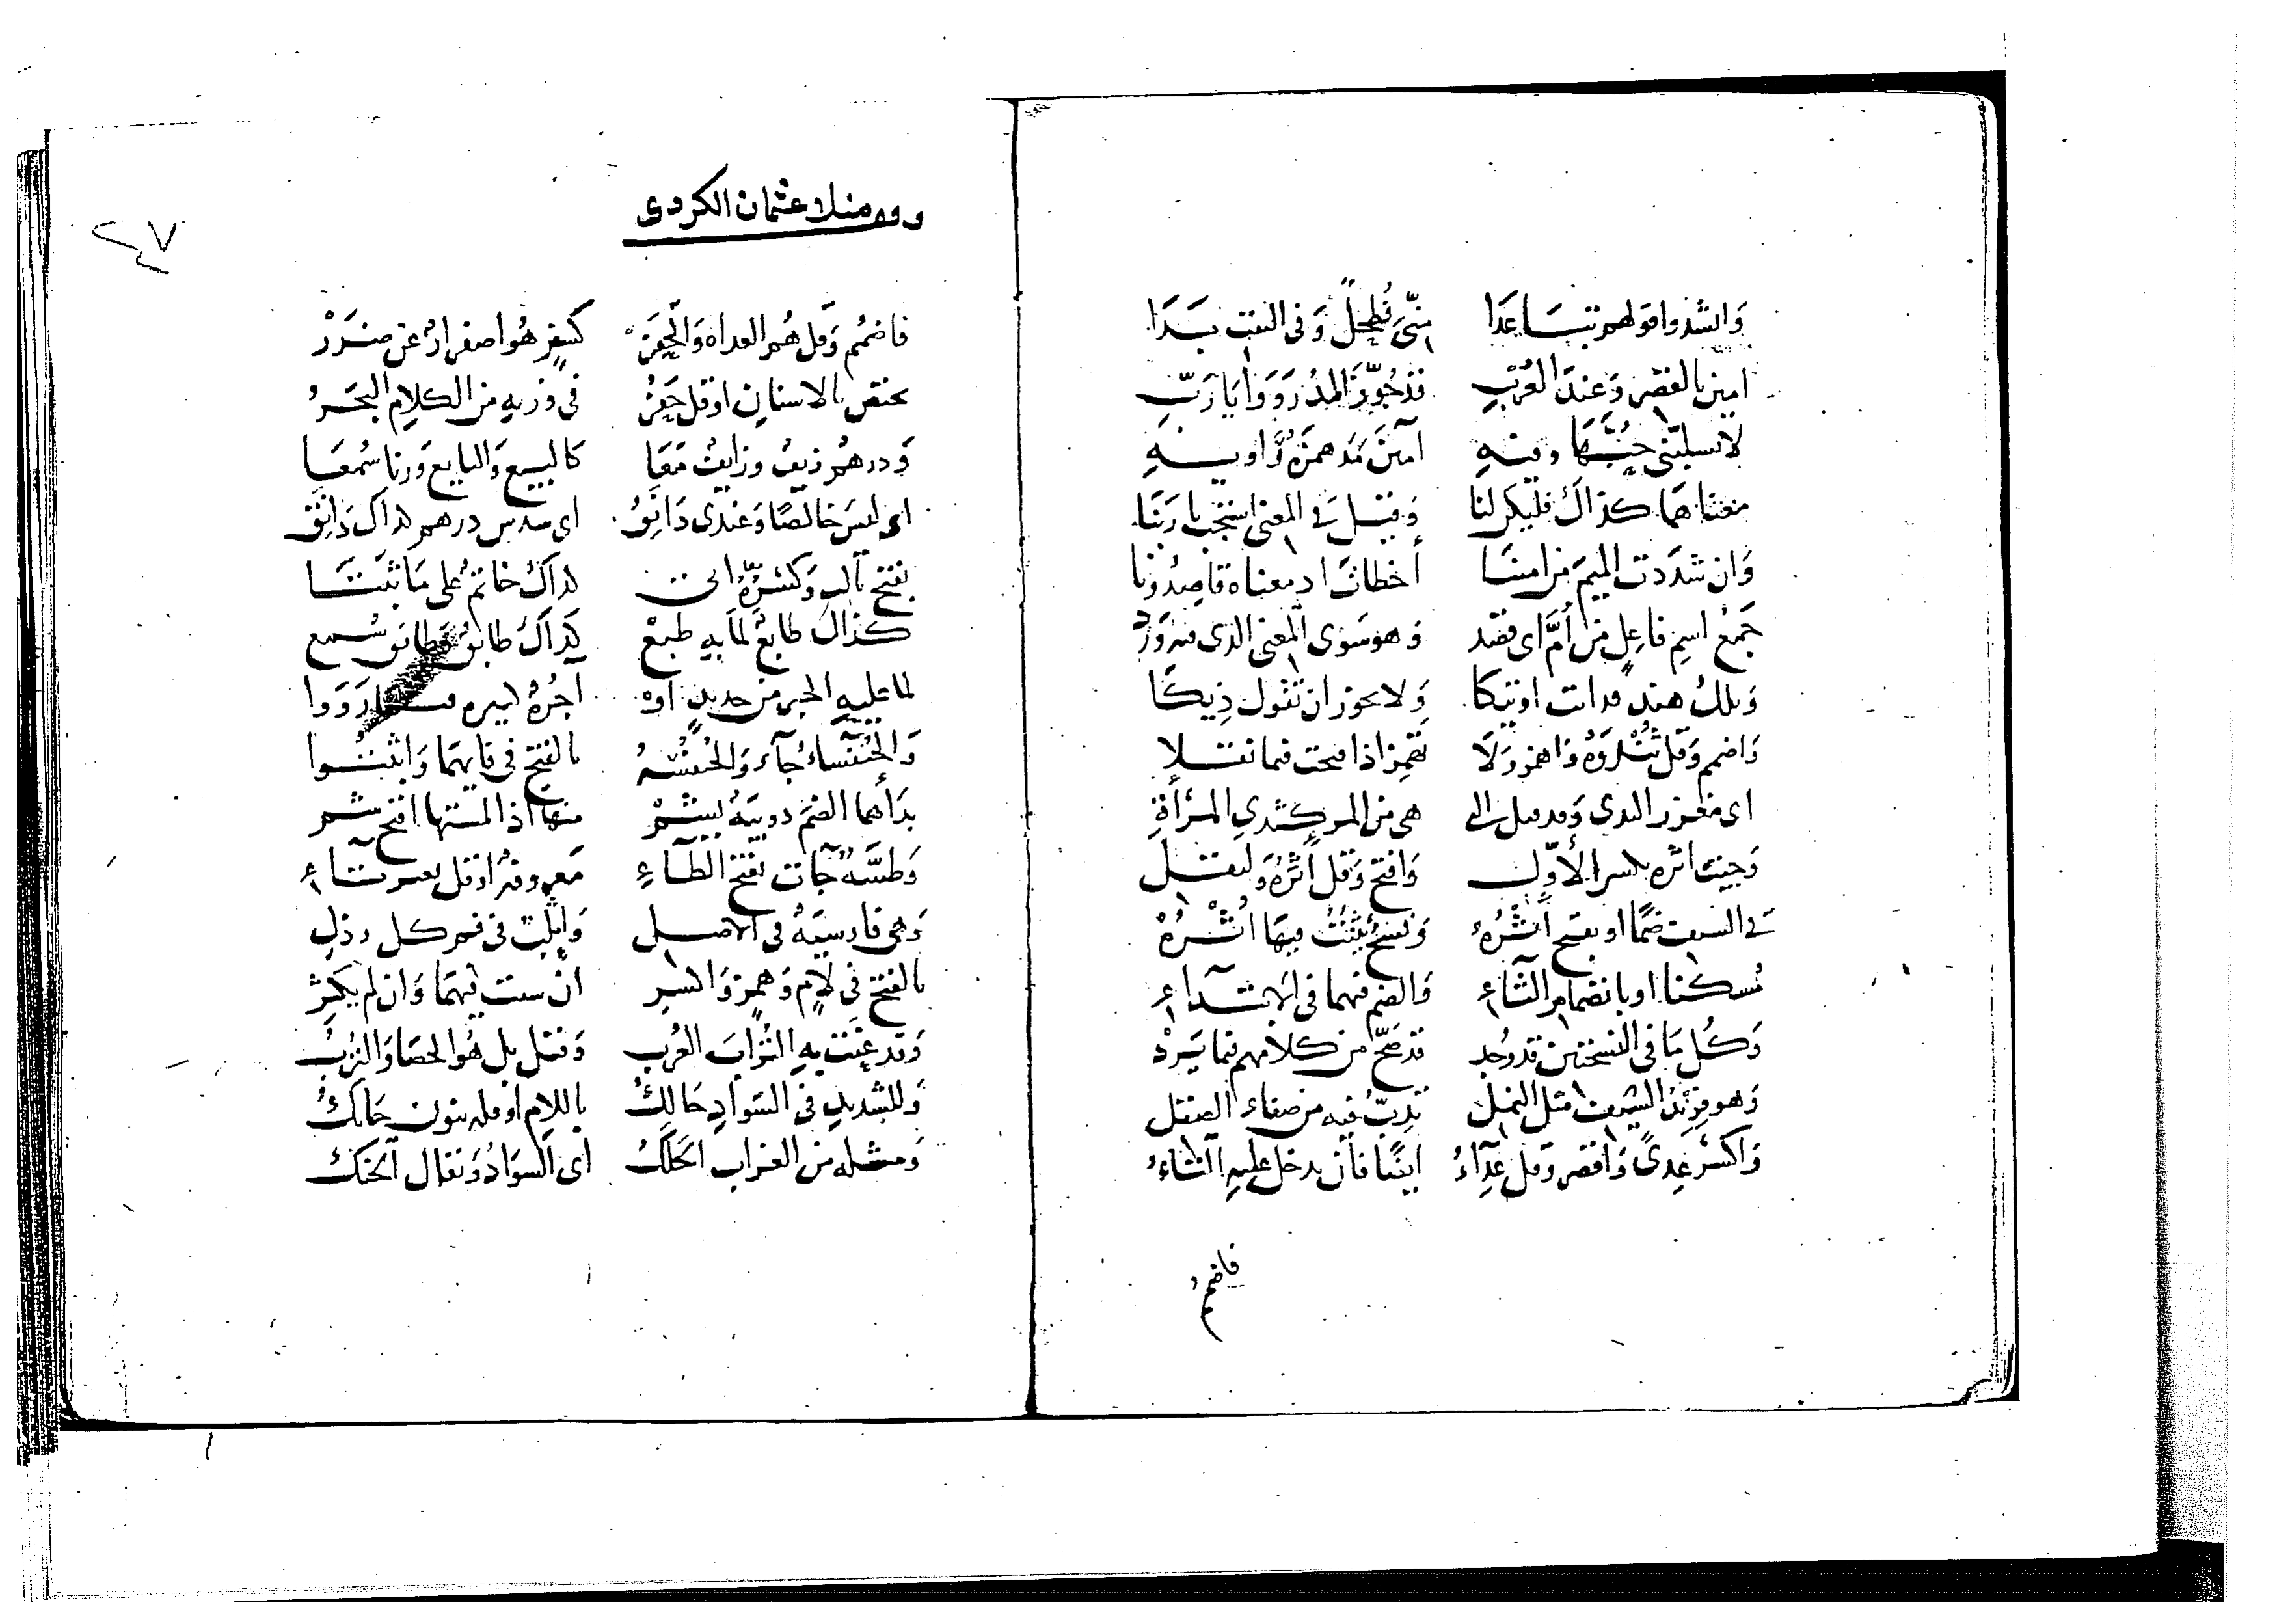 وانشدوا قولهم تباعدا منّي فُطحُلٌ وفي البيت بدا
امين بالقصر وعند العرب قد جُوّز المد رووا يا ربّ
لا تسلبنّي حُبّها وفيه آمين مد همزه راويه
معناهما كذاك فليكن لنا وقيل في المعنى استجب يا ربنا
وان شددت الميم من امينا أخطات اذ معناه قاصدونا
جمع اسم فاعل من أمّ اى قصد وهو سوى المعنى الذى فيه ورد
وتلك هند قد اتت او تيكا ولا يجوز ان تقول ذيكا
واضمم وقل ثُندُوة واهمز ولا تهمز اذا فتحت فيما نقلا
اى مغرز الثدى وقد قيل التى هي من المرء كثدي المرأة
وجيت اثره بكسر الأوّل وافتح وقل أثره
في السيف ضمّا او بفتح أثره ونسخ يثبت فيها اثره
مسكنا او بانضمام الثاء والضم فيهما في الابتداء
وكل ما في النسختين قد وُجد قد صحّ من كلامهم فيما يرد
وهو فرند السيف مثل النمل تدبّ فيه من صفاء الصقل
واكسر عدىً واقصر وقل عداءُ ايضا فان يدخل عليه التاءُ
فاضمم
وقف منلا عثمان الكردى
٢٤٧
فاضمم وقل هم العداه والحفر كسفر هو اصفرار عن ضرر
يختص بالاسنان او قل حفر في وزنه من الكلام البحر
ودرهم زيف وزايف معا كالبيع والبايع وزنا سُمعا
اى ليس خالصا وعندى دانق اى سدس درهم كذاك دانق
بفتح ثالث وكسره اتى كذاك خاتم على ما ثبتا
كذاك طابع لما به طبع كذاك طابق وطابق سُمع
لما عليه الخبز من حديد او آجرة كبيرة رووا
والخنفساء جاء والخنفسه بالفتح في فايهما واثبتوا
بدأهما الضم دويبة يشم منها اذا لمستها اقبح شم
وطسّة جآت بفتح الطاء معروفة او قل بغير تاء
وهي فارسية في الاصل واثلب في فم كل رذل
بالفتح في لام وهمز واكسر ان شيت فيهما وان لم يكثر
وقد عنت به التراب العرب وقيل بل هو الحصا والترب
وللشديد في السواد حالك باللام او قله بنون حانك
ومثله من الغراب الحلك اى السواد ويقال الحنك